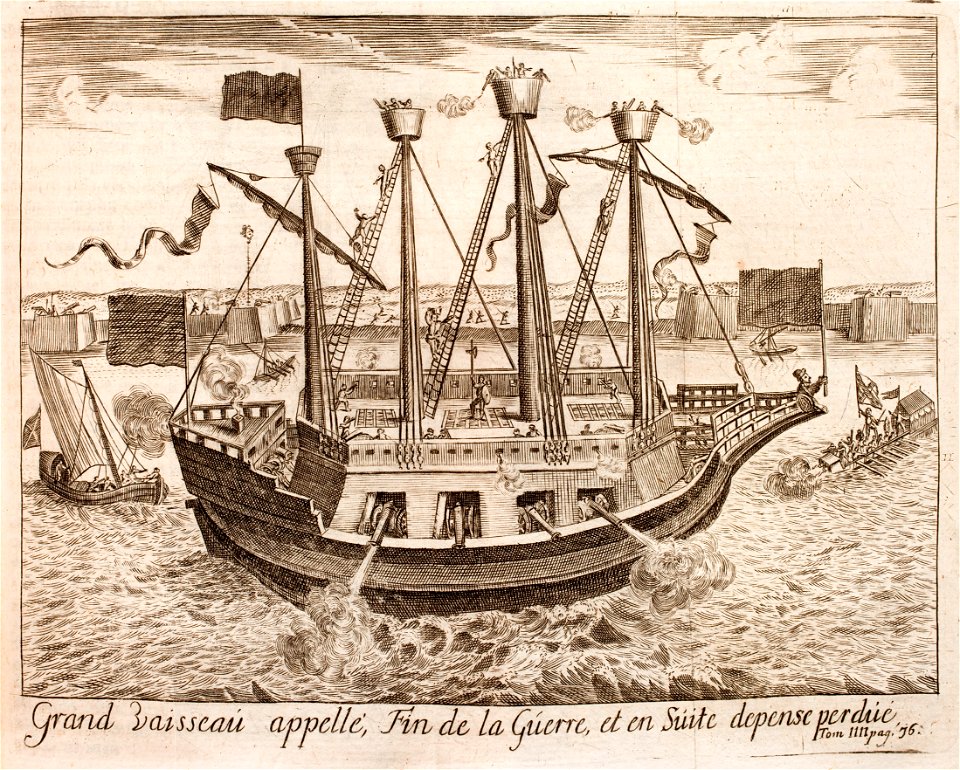 Grand Vaisseau appellé, Fin de la Guerre, et en Suite depense perdue,
Tom IIII pag. 76.